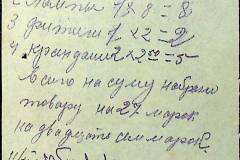 2 лампы 1 х 8 = 8
3 фитиля 1 х 2 = 2
4 карандаши 2 х 2⁵⁰ = 5
всего на суму набрано
товару на 27 марок
на двадцать семь марок